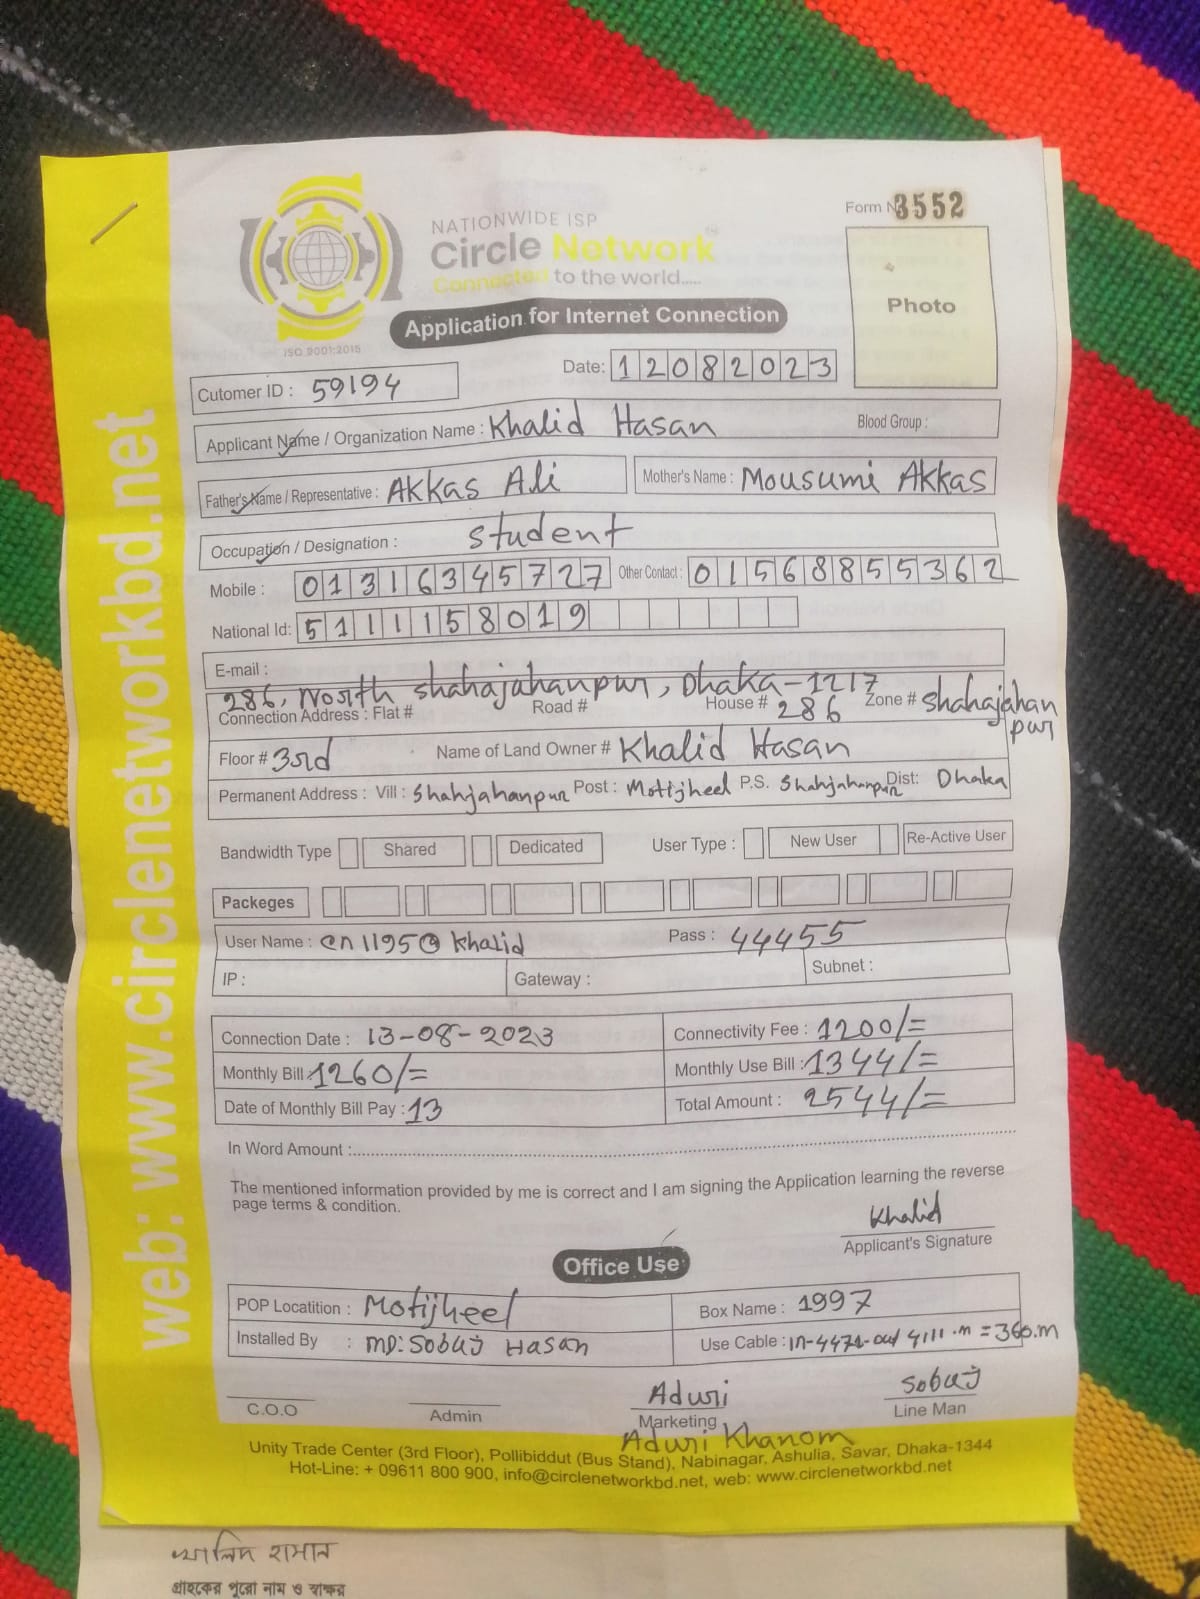 NATIONWIDE ISP
Circle Network
Connected to the world.....
ISO 9001:2015
Form N 3552
Photo
Application for Internet Connection
Date: 12082023
Cutomer ID : 59194
Applicant Name / Organization Name : Khalid Hasan Blood Group :
Father's Name / Representative : Akkas Ali Mother's Name : Mousumi Akkas
Occupation / Designation : Student
Mobile : 01316345727 Other Contact : 01568855362
National Id: 5111158019
E-mail :
286, North Shahajahanpur, Dhaka-1217
Connection Address : Flat # Road # House # 286 Zone # Shahajahanpur
Floor # 3rd Name of Land Owner # Khalid Hasan
Permanent Address : Vill : Shahjahanpur Post : Motijheel P.S. Shahjahanpur Dist: Dhaka
Bandwidth Type Shared Dedicated User Type : New User Re-Active User
Packeges
User Name : cn1195@khalid Pass : 44455
IP : Gateway : Subnet :
Connection Date : 13-08-2023 Connectivity Fee : 1200/=
Monthly Bill : 1260/= Monthly Use Bill : 1344/=
Date of Monthly Bill Pay : 13 Total Amount : 2544/=
In Word Amount :
The mentioned information provided by me is correct and I am signing the Application learning the reverse
page terms & condition.
Khalid
Applicant's Signature
Office Use
POP Locatition : Motijheel Box Name : 1997
Installed By : MD: Sobuj Hasan Use Cable : in-4471-out 4111.m = 360.m
Aduri Sobuj
C.O.O Admin Marketing Line Man
Aduri Khanom
Unity Trade Center (3rd Floor), Pollibiddut (Bus Stand), Nabinagar, Ashulia, Savar, Dhaka-1344
Hot-Line: + 09611 800 900, info@circlenetworkbd.net, web: www.circlenetworkbd.net
web: www.circlenetworkbd.net
খালিদ হাসান
গ্রাহকের পুরো নাম ও স্বাক্ষর